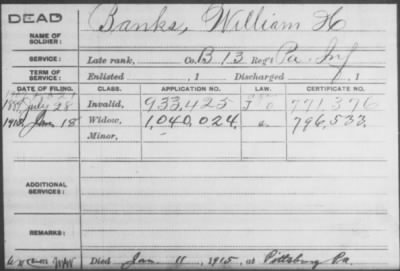 DEAD
Banks, William H
NAME OF SOLDIER:
SERVICE: Late rank, Co. B 13 Reg't Pa. Inf
TERM OF SERVICE: Enlisted , 1 Discharged , 1
DATE OF FILING. CLASS. APPLICATION NO. LAW. CERTIFICATE NO.
July 28 Invalid, 933,425 771,376
1915 Jan 18 Widow, 1,040,024 796,533.
Minor,
ADDITIONAL SERVICES:
REMARKS:
Died Jan 11, 1915, at Pittsburg Pa.